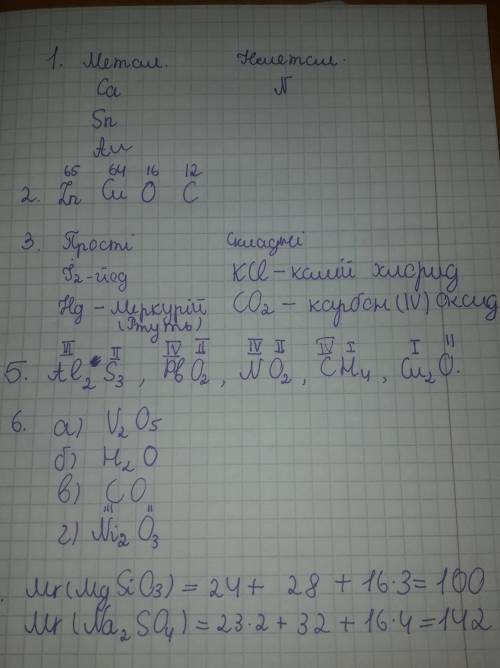 1. Метал. Неметал.
Ca N
Sn
Au
65 64 16 12
2. Zn Cu O C
3. Прості Складні
I2 - йод KCl - калій хлорид
Hg - меркурій CO2 - карбон (IV) оксид
(Ртуть)
VI II IV II IV II IV I I II
5. Al2 S3, PbO2, NO2, CH4, Cu2O.
6. а) V2O5
б) H2O
в) CO
III II
г) Ni2O3
. Mr(MgSiO3) = 24 + 28 + 16·3 = 100
Mr(Na2SO4) = 23·2 + 32 + 16·4 = 142